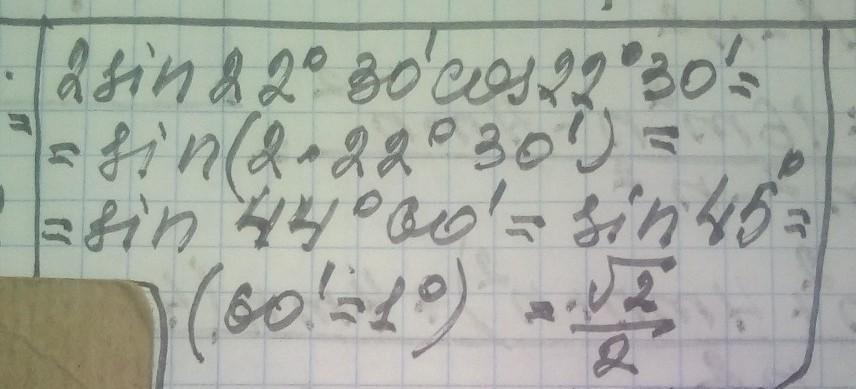 2 sin 22° 30' cos 22° 30' =
= sin(2 · 22° 30') =
= sin 44° 60' = sin 45° =
(60' = 1°) = √2/2